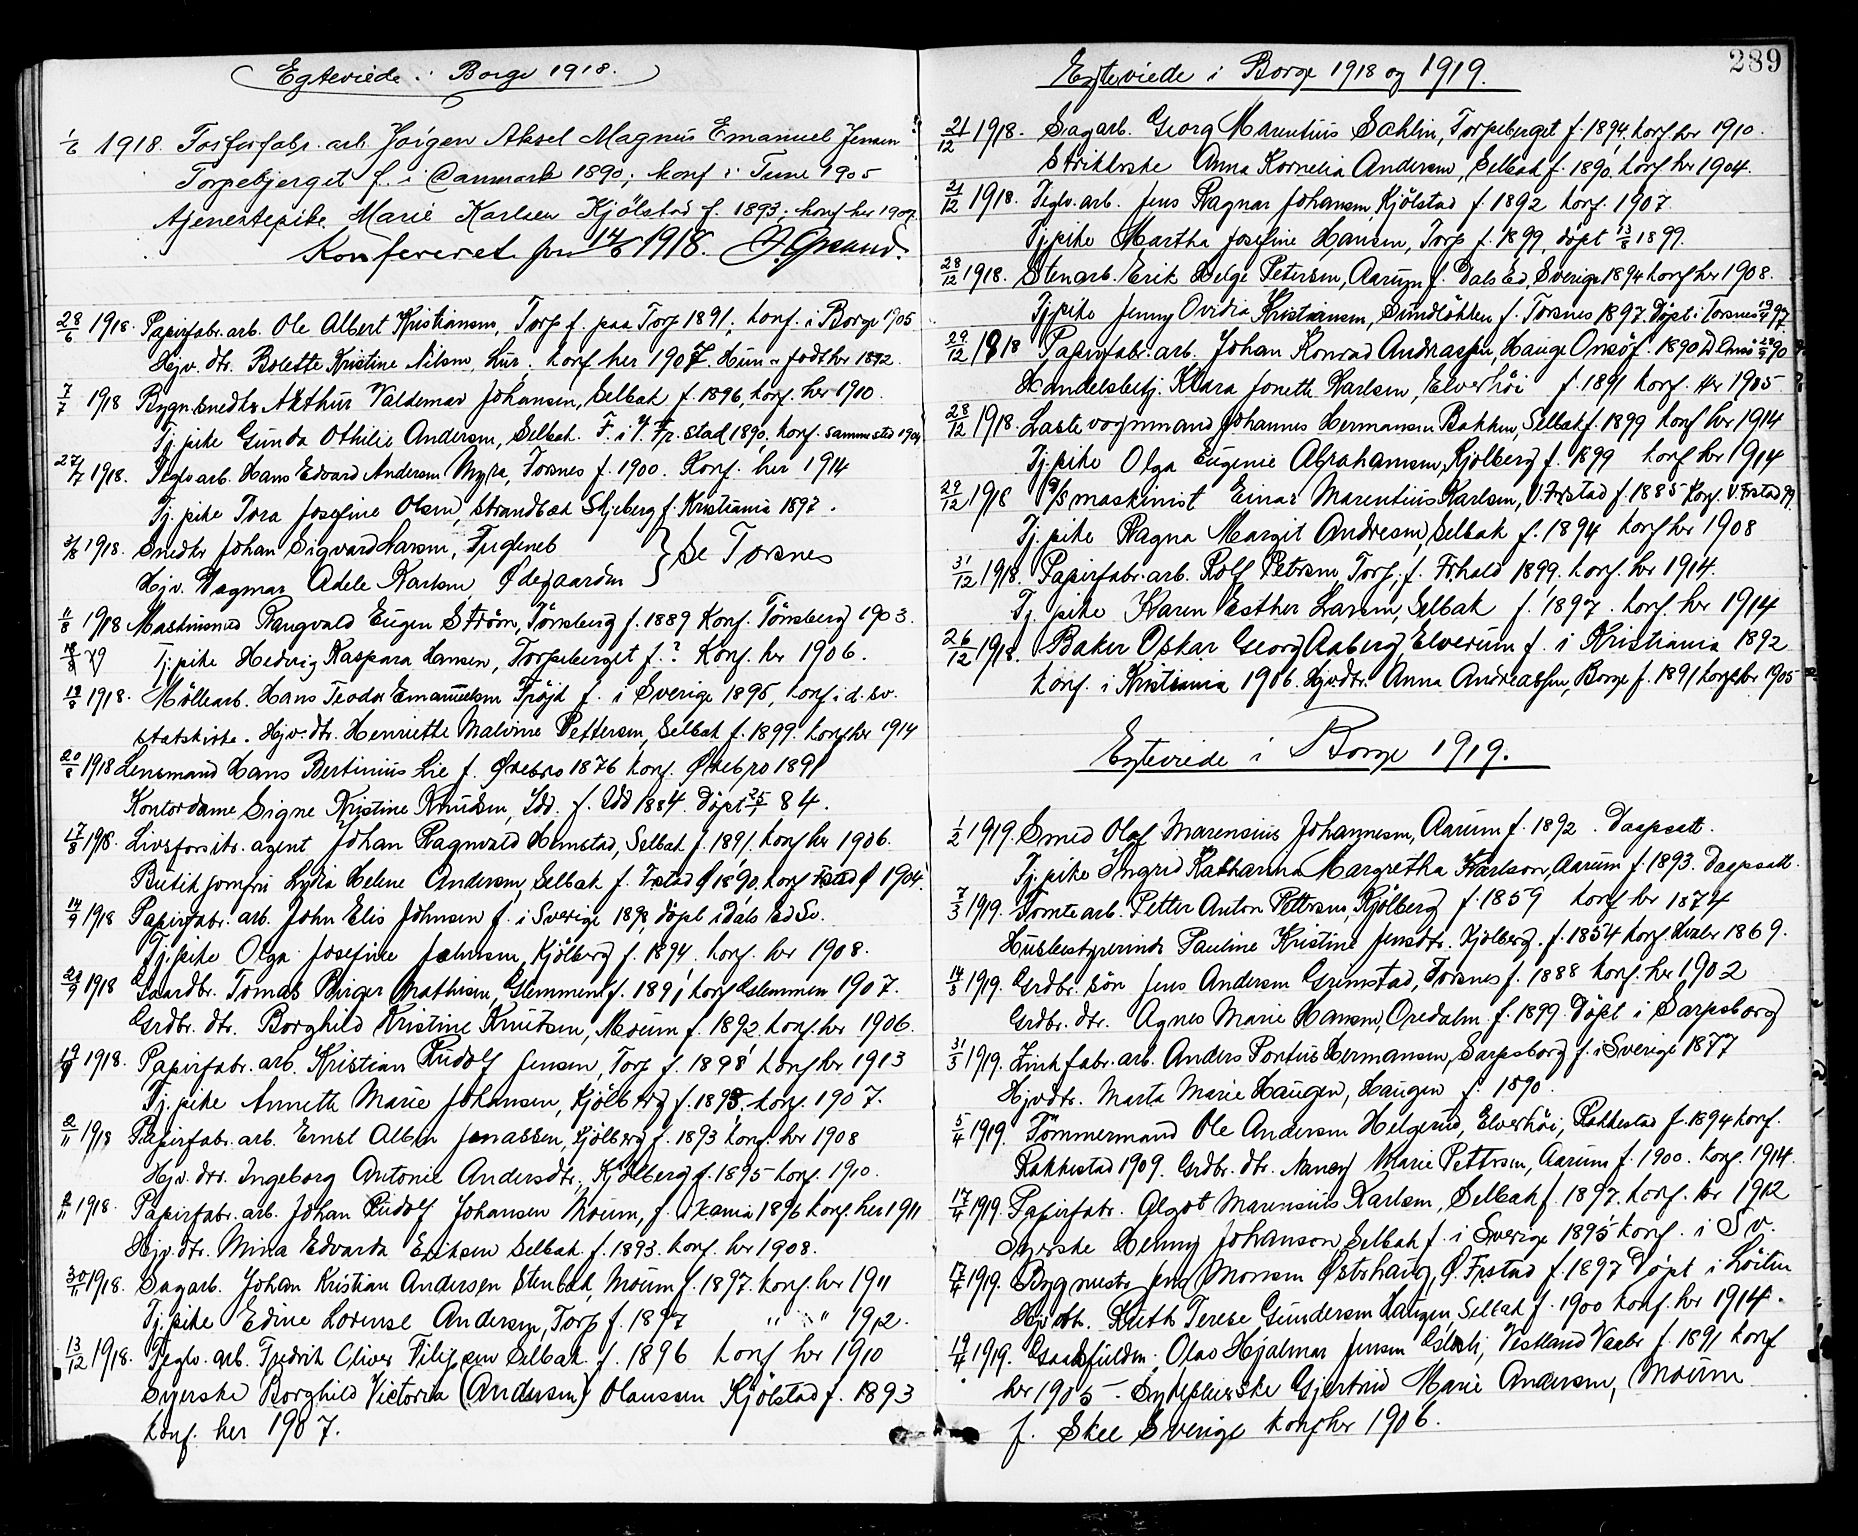 Egteviede i Borge 1918.
1/6 1918. Fosforfabr. arb. Jørgen Aksel Magnus Emanuel Jensen
Torpebjerget f. i Danmark 1890; konf i Tune 1905
tjenestepike Marie Karlsen Kjölstad f. 1893; konf her 1907
Konfereret pr 14/6 1918.
28/6 1918. Papirfabr. arb. Ole Albert Kristiansen, Torp f. paa Torp 1891; konf. i Borge 1905
Hjv. dtr. Bolette Kristine Nilsen, Lur. konf her 1907. Hun er födt her 1892.
7/7 1918 Bygn.snedker Arthur Valdemar Johansen, Selbak f. 1896, konf. her 1910.
Tj. pike Gunda Othilie Andersen, Selbak. F. i V. Fr.stad 1890, konf. sammested
27/7 1918. Teglv arb. Hans Edvard Andersen Myra, Torsnes f. 1900. Konf. her 1914
Tj. pike Tora Josefine Olsen, Strandbæk Skjeberg f. Kristiania 1897.
3/8 1918. Snedker Johan Sigvard Larsen, Fugleneb } Se Torsnes
Hjv. Dagmar Adele Karlsen, Ødegaarden
11/8 1918 Maskinsmed Rangvald Eugen Ström, Tönsberg f. 1889 Konf. Tönsberg 1903.
Tj. pike Hedvig Kaspara Hansen, Torpeberget f.? Konf. her 1906.
18/8 1918. Möllearb. Hans Teodor Emanuelsen Fröjd f. i Sverige 1895, konf i d. sv.
statskirke. Hjv. dtr. Henriette Malvine Pettersen, Selbak f. 1899. konf her 1914
20/8 1918 Lensmand Hans Bertinius Lie f. Øvebro 1876 konf. Øvebro 1891
Kontordame Signe Kristine Knudsen, Idd. f. Idd 1884. Döpt 25/1 84.
17/8 1918. Livsforsikr. agent Johan Ragnvald Hemstad, Selbak f. 1891. konf her 1906.
Butikjomfru Lydia Helene Andersen, Selbak f. Frstad Ø 1890, konf Frstad Ø 1904.
14/9 1918 Papirfabr. arb. John Elis Johnsen f. i Sverige 1898, döpt i Dals Ed Sv.
Tj. pike Olga Josefine Johnsen, Kjölberg f. 1894. konf. her 1908.
28/9 1918 Gaardbr. Tomas Birger Mathisen, Glemmen f. 1891 konf Glemmen 1907.
Grdbr. dtr. Borghild Kristine Knutsen, Moum f. 1892. konf. her 1906.
1918. Papirfabr. arb. Kristian Rudolf Jensen, Torp f. 1898 konf her 1913
Tj. pike Annette Marie Johansen, Kjölberg f. 1893, konf. 1907.
2/11 1918 Papirfabr. arb. Ernst Albin Jonassen, Kjölberg f. 1893 konf. her 1908
Hjv. dtr. Ingeborg Antonie Andersdtr., Kjölberg f. 1895 konf. 1910.
2/11 1918. Papirfabr. arb. Johan Rudolf Johansen Moum, f. i Kr.ania 1896 konf. her 1911
Hjv. dtr. Mina Edvarda Eriksen Selbak f. 1893. konf. her 1908.
30/11 1918. Sagarb. Johan Kristian Andersen Stenbæk, Moum f. 1897. konf. her 1911
Tj. pike Edine Lovinse Andersen, Torp f. 1897 " " " 1912.
13/12 1918. Teglv. arb. Fredrik Oliver Filipsen Selbak f. 1896 konf her 1910
Syerske Borghild Victoria (Andersen) Olaussen Kjölstad f. 1893
konf. her 1907.
289
Egteviede i Borge 1918 og 1919.
21/12 1918. Sagarb. Georg Marentius Sahlin, Torpeberget f. 1894, konf her 1910.
Strikkerske Anna Kornelia Andersen, Selbak f. 1890, konf. her 1904.
21/12 1918. Teglv. arb. Jens Ragnar Johansen, Kjölstad f. 1892 konf. 1907.
Tj. pike Martha Josefine Hansen, Torp f. 1899, döpt 13/8 1899.
28/12 1918. Stenarb. Erik Helge Petersen, Aarum f. Dals Ed, Sverige 1894 konf her 1908.
Tj. pike Jenny Ovidia Kristiansen, Sundlökken f. Torsnes 1897. Döpt i Torsnes 97
29/12 1918 Papirfabr. arb. Johan Konrad Andreassen, Hauge Onsö f. 1890 D. Onsö 90
Handelsbetj. Klara Jonette Karlsen, Elverhöi f. 1891 konf. her 1905
28/12 1918. Lastevognmand Johannes Hermansen Bakken, Selbak f. 1899 konf her 1914
Tj. pike Olga Eugenie Abrahamsen, Kjölberg f. 1899 konf her 1914
29/12 1918 D/S maskinist Einar Marentius Karlsen, V. Frstad f. 1885 konf. V. Frstad 99
Tj. pike Ragna Margit Andresen, Selbak f. 1894 konf her 1908
31/12 1918. Papirfabr. arb. Rolf Petersen, Torp, f. Frhald 1899. konf. her 1914.
Tj. pike Karen Esther Larsen, Selbak f. 1897. konf. her 1914
26/12 1918. Baker Oskar Georg Aaberg, Elverum f. i Kristiania 1892
konf. i Kristiania 1906. Hjv. dtr. Anna Andreassen, Borge f. 1891 konf her 1905
Egteviede i Borge 1919.
1/2 1919. Smed Olaf Marensius Johannesen, Aarum f. 1892. Daapsatt.
Tj. pike Ingrid Katharina Margretha Karlson, Aarum f. 1893. Daapsatt.
7/3 1919. Tomtearb. Petter Anton Pettersen, Kjölberg f. 1859 konf her 1874
Husbestyrerinde Pauline Kristine Jensdtr. Kjölberg. f. 1854 konf Hvaler 1869.
14/3 1919. Grdbr. sön Jens Andersen Grimstad, Torsnes f. 1888 konf. her 1902
Grdbr. dtr. Agnes Marie Hansen, Oredalen f. 1899. Döpt i Sarpsborg
31/3 1919. Zinkfabr. arb. Anders Pontus Hermansen, Sarpsborg f. i Sverige 1877
Hjv dtr. Marta Marie Haugen, Haugen f. 1890.
5/4 1919. Tömmermand Ole Andersen Helgerud, Elverhöi, Rakkestad f. 1894 konf.
Rakkestad 1909. Grdbr. dtr. Nancy Marie Pettersen, Aarum f. 1900. konf. 1914.
17/4 1919. Papirfabr. Algot Marensius Karlsen, Selbak f. 1897. konf. her 1912
Syerske Henny Johanson, Selbak f. i Sverige 1895 konf. i Sv.
17/4 1919. Bygmester Jens Monsen Østshaug, Ø. Frstad f. 1897 Döpt i Löiten
Hjv dtr. Ruth Terese Gundersen Haugen, Selbak f. 1900 konf. her 1914.
19/4 1919. Olav Hjalmar Jensen Vestland Vaaler f. 1891 konf
her 1905. Gjertrud Marie Andersen, Moum
f. Skee Sverige konf her 1906.